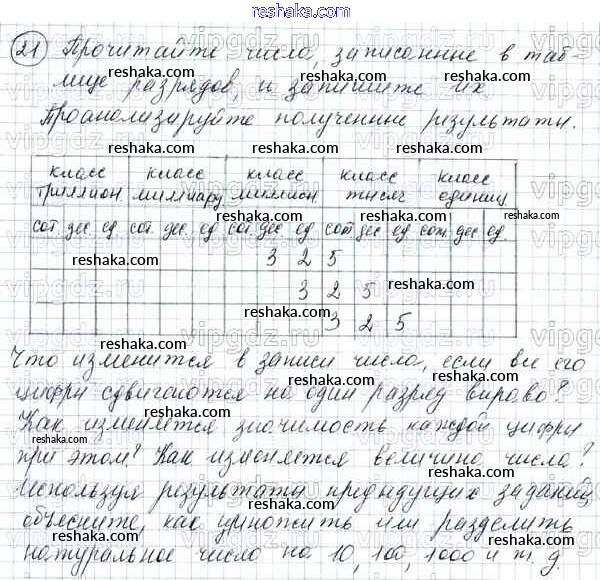 reshaka.com
21 Прочитайте число, записанные в таб-
лице разрядов, и запишите их.
Проанализируйте полученные результаты.
класс триллион. класс миллиард. класс миллион. класс тысяч класс единиц
сот. дес. ед. сот. дес. ед. сот. дес. ед. сот. дес. ед. сот. дес. ед.
3 2 5
3 2 5
3 2 5
Что изменится в записи числа, если все его
цифры сдвигаются на один разряд вправо?
Как изменяется значимость каждой цифры
при этом? Как изменяется величина числа?
Используя результата предыдущих заданий,
объясните, как умножить или разделить
натуральное число на 10, 100, 1000 и т. д.